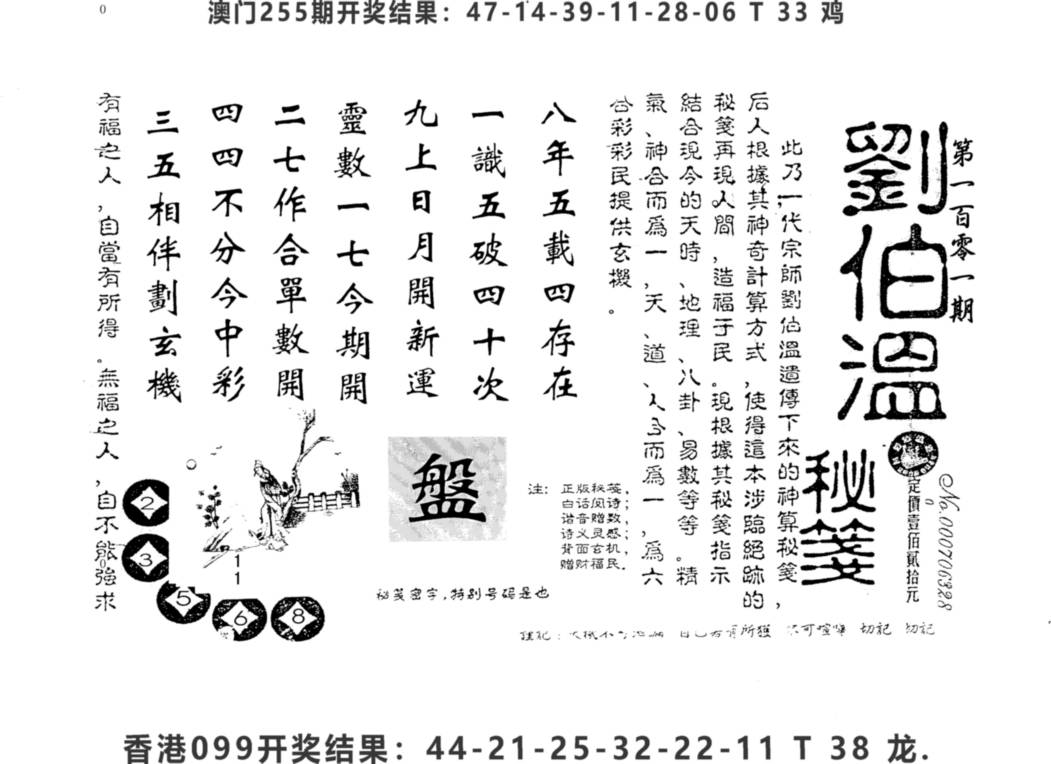 澳门255期开奖结果：47-14-39-11-28-06 T 33 鸡
0
第一百零一期
劉伯溫
秘箋
定價壹佰貳拾元
No.000706328
此乃一代宗師劉伯溫遺傳下來的神算秘箋，
后人根據其神奇計算方式，使得這本涉臨絕跡的
秘箋再現人間，造福于民。現根據其秘箋指示
結合現今的天時、地理、八卦、易數等等。精
氣、神合而爲一，天、道、人合而爲一，爲六
合彩彩民提供玄機。
八年五載四存在
一識五破四十次
九上日月開新運
靈數一七今期開
二七作合單數開
四四不分今中彩
三五相伴劃玄機
有福之人，自當有所得。無福之人，自不能強求
盤
注：正版秘笺，
白话阅诗；
谐音赠数，
诗义灵感；
背面玄机，
赠财福民。
2
3
5
6
8
11
秘笺密字，特别号码是也
可喧嘩 切記 切記
香港099开奖结果：44-21-25-32-22-11 T 38 龙.